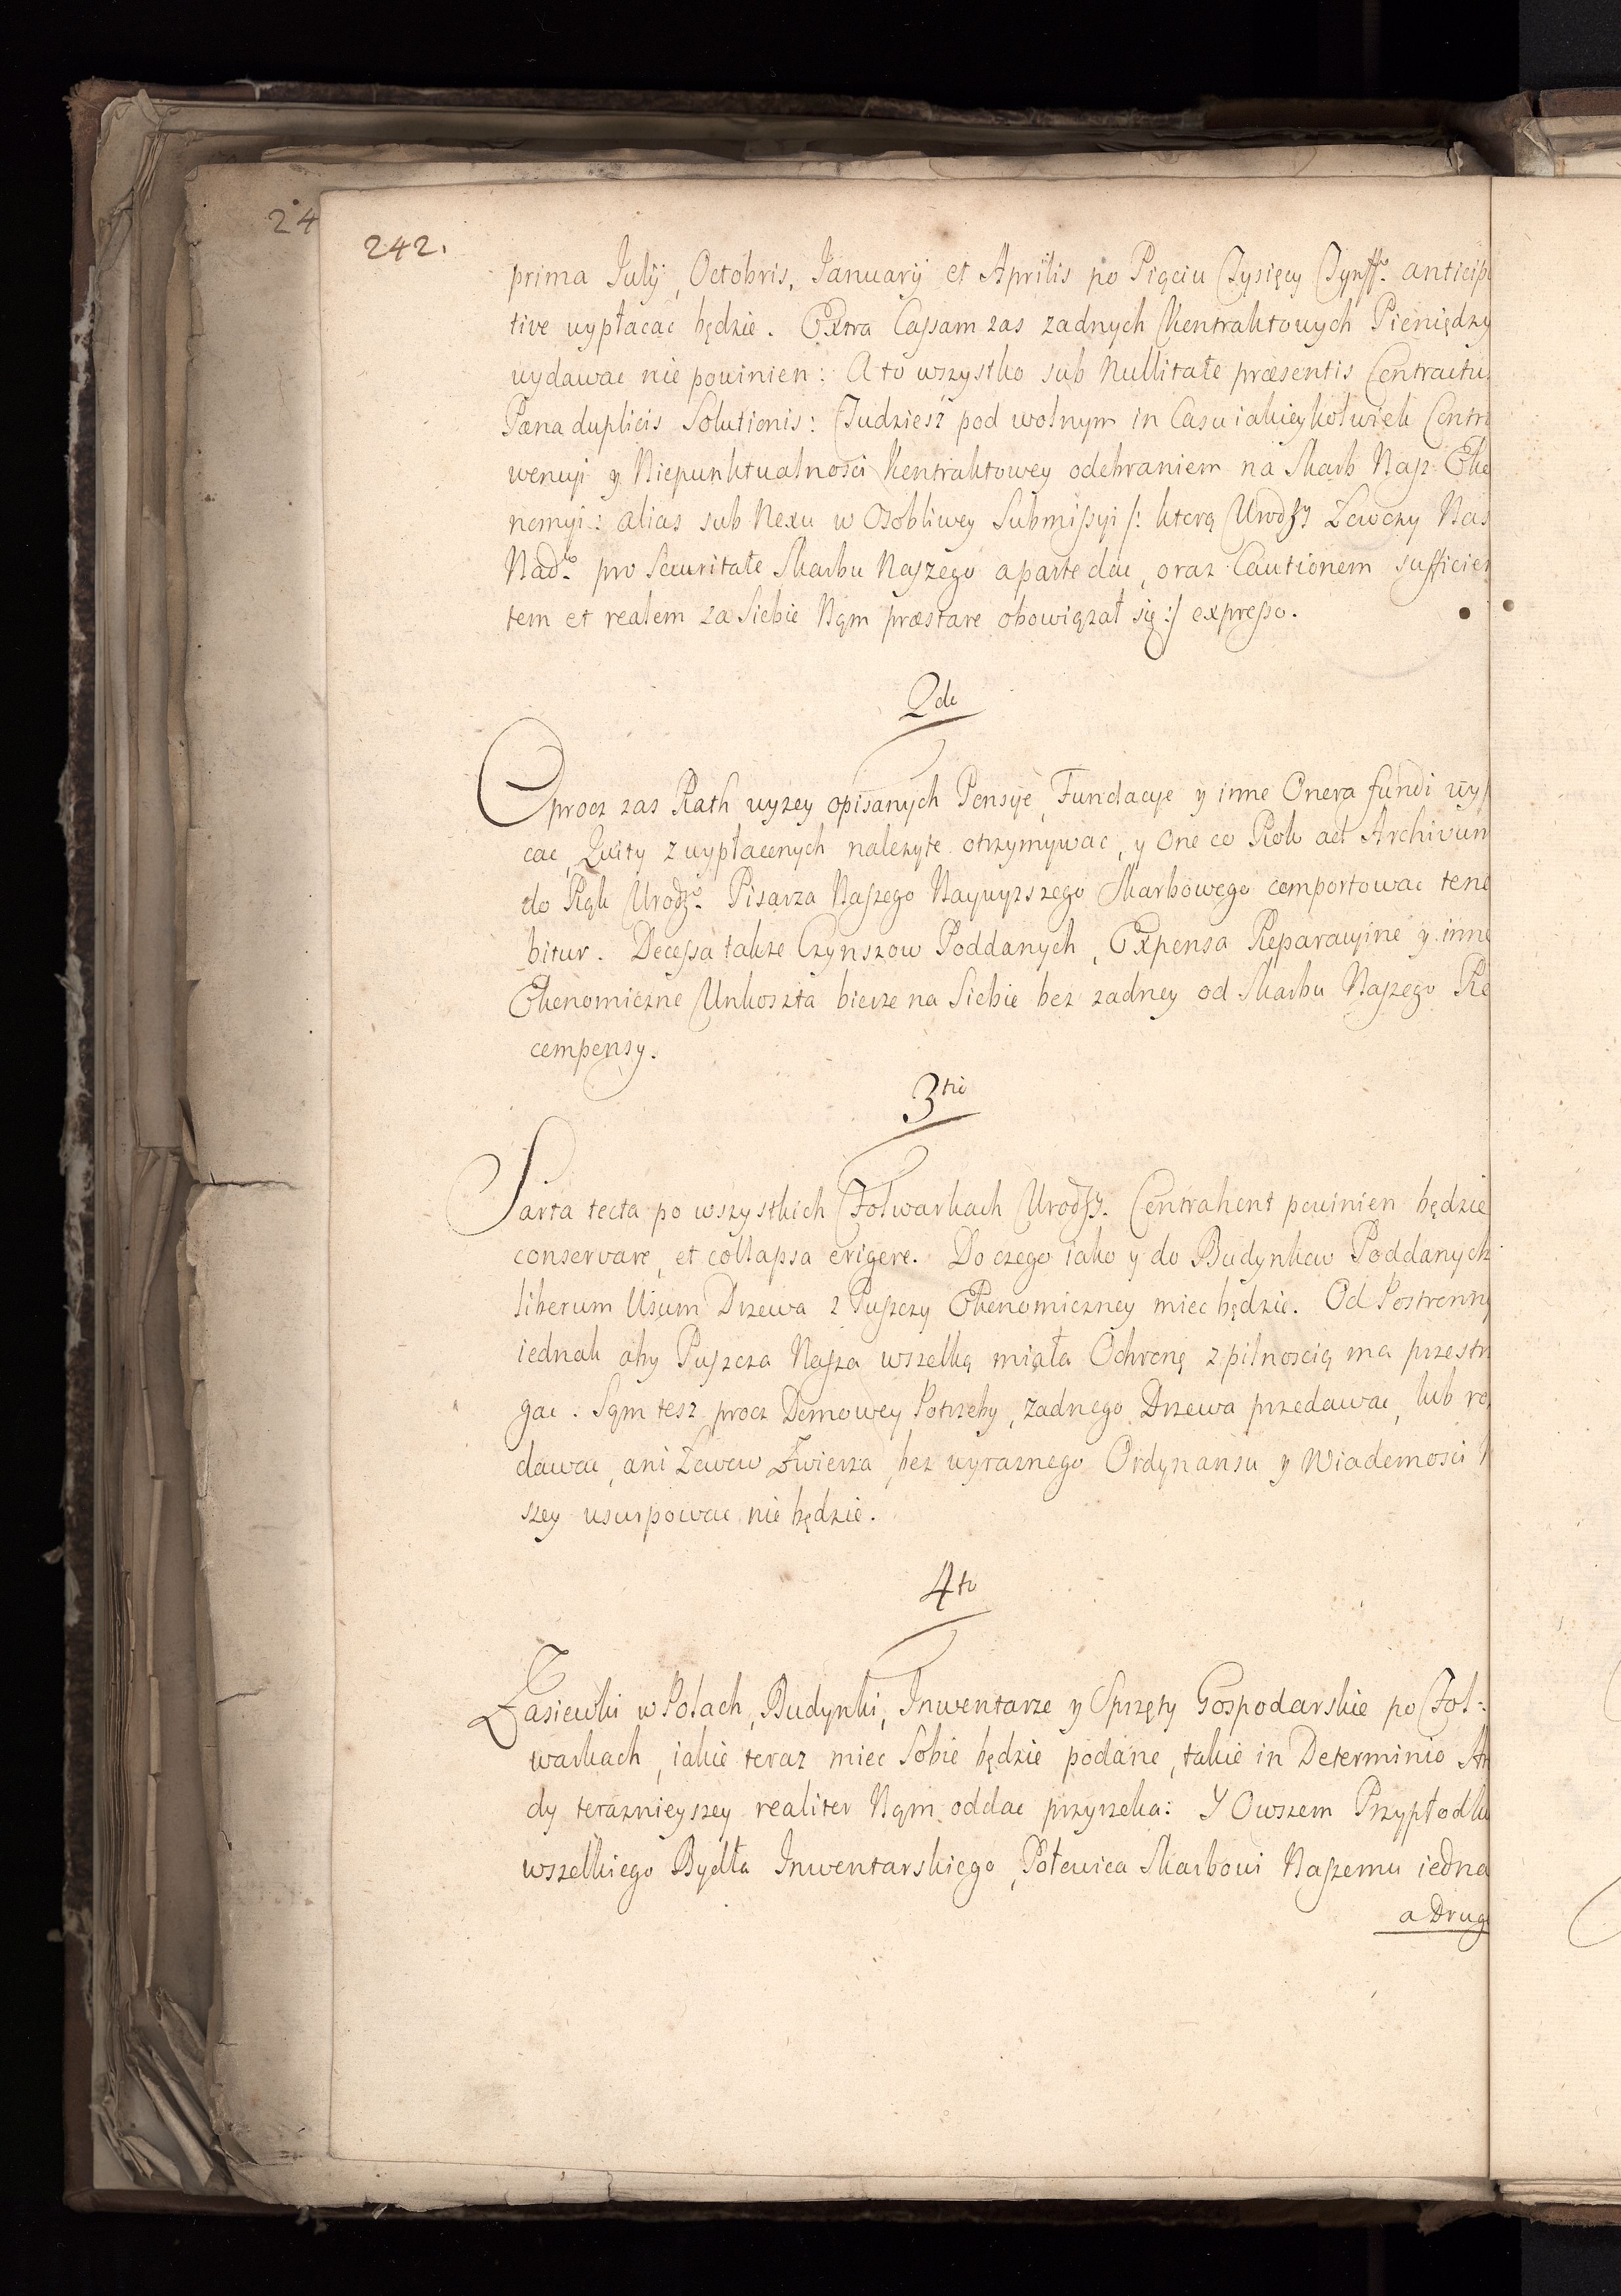 24
242.
prima Julÿ, Octobris, Januarÿ et Aprilis po Pięciu Tysięcy Tynffo. anticip
tive wypłacać będzie. Extra Cassam zas zadnych Kontraktowych Pieniędzy
wydawac nie powinien: A to wszystko sub Nullitate præsentis Contractu
Pæna duplicis Solutionis: Tudziesz pod wolnym in Casu iakieykolwiek Contr
wencyi y Niepunktualnosci Kontraktowey odebraniem na Skarb Nasz Eko
nomyi: alias sub Nexu w Osobliwey Submissyi /: ktorą Urodzy Łowczy Nas
Nado. pro Securitate Skarbu Naszego aparte dac, oraz Cautionem sufficien
tem et realem za Siebie Nąm præstare obowiązał się :/ expresso.
2do
Oprocz zas Rath wyzey opisanych Pensye, Fundacye y inne Onera fundi wyp
cac, Quity z wypłaconych nalezyte otrzymywac, y one co Rok ad Archivum
do Rąk Urodzo. Pisarza Naszego Naywyzszego Skarbowego comportowac tene
bitur. Decessa takze Czynszow Poddanych, Expensa Reparacyine y inne
Ekonomiczne Unkoszta bierze na Siebie bez zadney od Skarbu Naszego Re
compensy.
3tio
Sarta tecta po wszystkich Folwarkach Urodzy. Contrahent powinien będzie
conservare, et collapsa erigere. Do czego iako y do Budynkow Poddanych
liberum Usum Drzewa z Puszczy Ekonomiczney miec będzie. Od Postronny
iednak aby Puszcza Nasza wszelką miała Ochronę z pilnoscią ma przestrz
gac. Sąm tesz procz Domowey Potrzeby, zadnego Drzewa przedawac, lub roz
dawac, ani Łowow Zwierza, bez wyraznego Ordynansu y Wiadomosci N
szey usurpowac nie będzie.
4to
Zasiewki w Polach, Budynki, Inwentarze y Sprzęty Gospodarskie po Fol=
warkach, iakie teraz miec Sobie będzie podane, takie in Determinio Ar
dy teraznieyszey realiter Nąm oddac przyrzeka: Y Owszem Przypłodku
wszelkiego Bydła Inwentarskiego, Połowica Skarbowi Naszemu iedna
a Drug